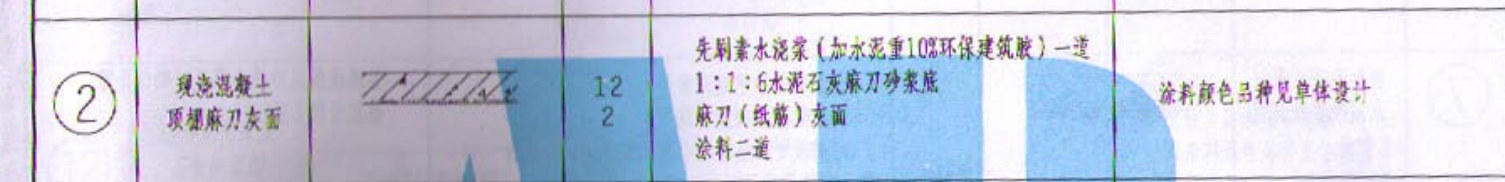 2
现浇混凝土
顶棚麻刀灰面
12
2
先刷素水浇浆(加水泥重10%环保建筑胶)一道
1:1:6水泥石灰麻刀砂浆底
麻刀(纸筋)灰面
涂料二道
涂料颜色品种见单体设计